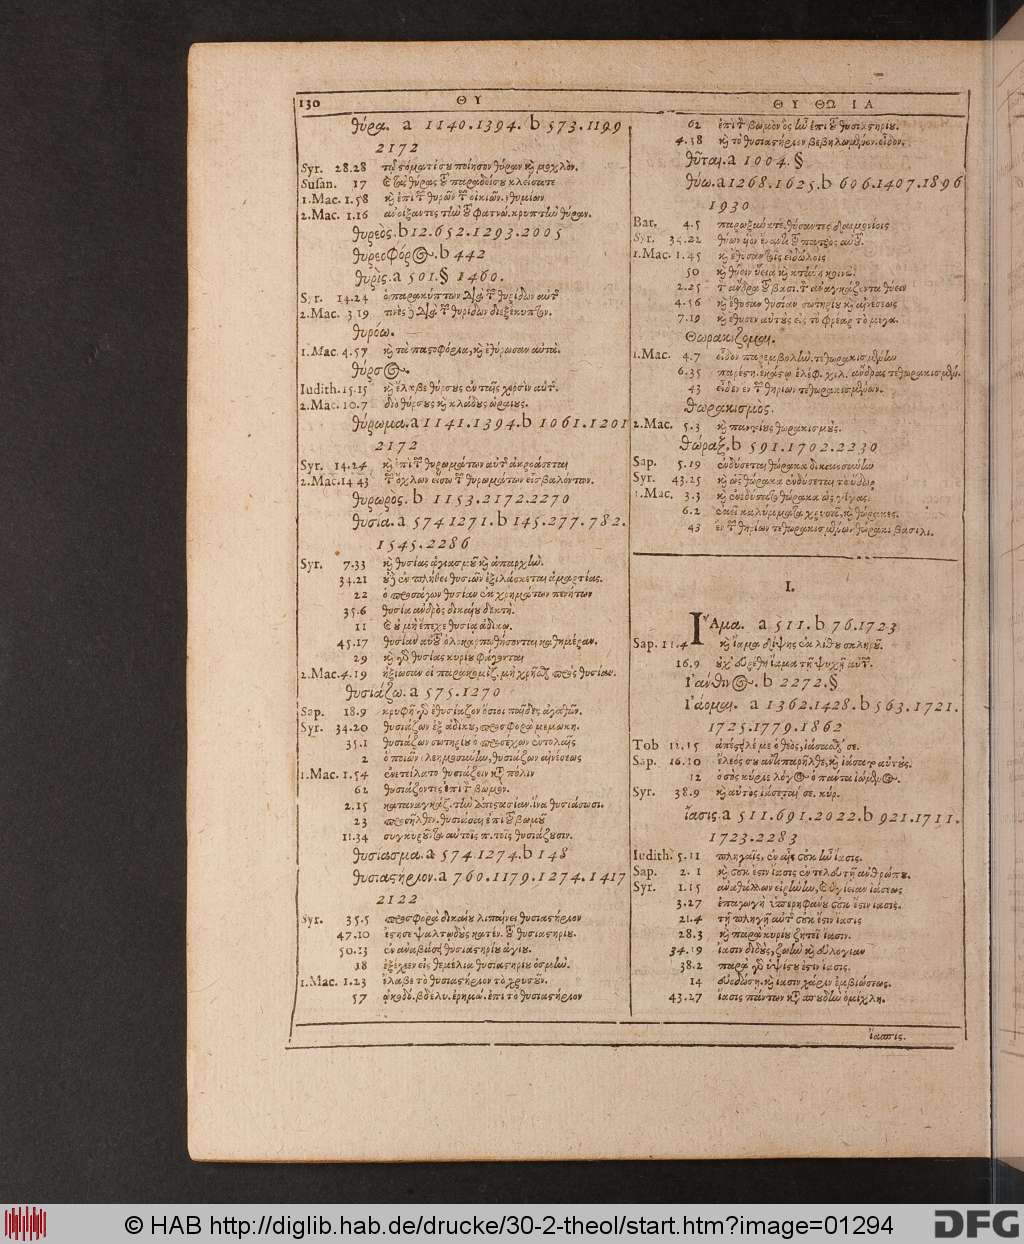 130
ΘΥ
θύρα. a 1140.1394. b 573.1199
2172
Syr. 28.28 ποίησον θύραν κ̀ μοχλὸν.
Susan. 17 θύρας παραδείσου κλείσατε
1.Mac. 1.58 κ̀ ἐπὶ θυρῶν οἰκιῶν. ἐθυμίων
2.Mac. 1.16 ἀνοίξαντες κρυπτὼ θύραν.
θυρεὸς. b 12.652.1293.2005
θυρεοφόρος. b 442
θυρὶς. a 501. § 1460.
Syr. 14.24 ὁ παρακύπτων θυρίδων αὐτ
2.Mac. 3 19 τινὲς θυρίδων διεξέκυπτον.
θυρόω.
1.Mac. 4.57 κ̀ τὰ παστοφόρια, κ̀ ἐθύρωσαν αὐτὰ.
θύρσος.
Iudith. 15.15 κ̀ ἔλαβε θύρσους ἐν ταῖς χερσὶν αὐτ.
2.Mac. 10.7 διὸ θύρσους κ̀ κλάδους ὡραίους.
θύρωμα. a 1141.1394. b 1061.1201
2172
Syr. 14.24 κ̀ ἐπὶ θυρωμάτων αὐτ ἀκροάσεται
2.Mac. 14 43 ὄχλων εἴσω θυρωμάτων εἰσβαλόντων.
θυρωρὸς. b 1153.2172.2270
θυσία. a 574 1271. b 145.277.782.
1545.2286
Syr. 7.33 κ̀ θυσίας ἁγιασμοῦ κ̀ ἀπαρχὼ.
34.21 πλήθει θυσιῶν ἐξιλάσκεται ἁμαρτίας.
22 ὁ προσάγων θυσίαν ἐκ χρημάτων πενήτων
35.6 θυσία ἀνδρὸς δικαίου δεκτὴ.
11 μὴ ἔπεχε θυσίᾳ ἀδίκῳ.
45.17 θυσίαι ὁλοκαρπωθήσονται καθημέραν.
29 κ̀ θυσίας κυρίου φάγονται
2.Mac. 4.19 ἠξίωσαν οἱ παρακομίζ. μὴ πρὸς θυσίαν.
θυσιάζω. a 575.1270
Sap. 18.9 κρυφῆ ἐθυσίαζον ὅσιοι παῖδες ἀγαθῶν.
Syr. 34.20 θυσιάζων ἐξ ἀδίκου, προσφορὰ μεμωκη.
35.1 θυσιάζων σωτηρίου ὁ προσέχων ἐντολαῖς
2 ὁ ποιῶν ἐλεημοσύνην, θυσιάζων αἰνέσεως
1.Mac. 1.54 ἐνετείλατο θυσιάζειν πόλιν
62 θυσιάζοντες ἐπὶ βωμὸν.
2.15 καταναγκάζ. ἀποστασίαν. ἵνα θυσιάσωσι.
23 προσῆλθεν. θυσιάσαι ἐπὶ βωμοῦ
11.34 συγκυροῦντα αὐτοῖς π. τοῖς θυσιάζουσιν.
θυσίασμα. a 574 1274. b 148
θυσιαστήριον. a 760.1179.1274.1417
2122
Syr. 35.5 προσφορὰ δικαίου λιπαίνει θυσιαστήριον
47.10 ἔστησε ψαλτῳδοὺς κατέν. θυσιαστηρίου.
50.13 ἐν ἀναβάσει θυσιαστηρίου ἁγίου.
18 ἐξέχεεν εἰς θεμέλια θυσιαστηρίου ὀσμὼ.
1.Mac. 1.23 ἔλαβε τὸ θυσιαστήριον τὸ χρυσοῦν.
57 ᾠκοδό. βδέλυ. ἐρημώ. ἐπὶ τὸ θυσιαστήριον
ΘΥ ΘΩ ΙΑ
62 ἐπὶ βωμὸν ὃς ἐπὶ θυσιαστηρίου.
4.38 κ̀ τὸ θυσιαστήριον βεβηλωμένον. εἶδον.
θῦται. a 1004. §
θύω. a 1268.1625. b 606.1407.1896
1930
Bar. 4.5 θύσαντες δαιμονίοις
Syr. 34.22 θύων υἱὸν ἔναντι πατρὸς αὐτ.
1.Mac. 1.45 κ̀ ἔθυσαν τοῖς εἰδώλοις
50 κ̀ θύειν ὕεια κ̀ κτήνη κοινὰ.
2.25 ἄνδρα βασι. ἀναγκάζοντα θύειν
4.56 κ̀ ἔθυσαν θυσίαν σωτηρίου κ̀ αἰνέσεως
7.19 κ̀ ἔθυσεν αὐτοὺς εἰς τὸ φρέαρ τὸ μέγα.
Θωρακίζομαι.
1.Mac. 4.7 εἶδον παρεμβολὼ. τεθωρακισμένω
6.35 παρέστη. ἑκάστῳ ἐλέφ. χιλ. ἄνδρας τεθωρακισμέν.
43 εἶδεν ἓν θηρίων τεθωρακισμένων.
Θωρακισμὸς.
2.Mac. 5.3 κ̀ παντοίους θωρακισμοὺς.
θώραξ. b 591.1702.2230
Sap. 5.19 ἐνδύσεται θώρακα δικαιοσύνω
Syr. 43.25 κ̀ ὡς θώρακα ἐνδύσεται τὸ ὕδωρ
1.Mac. 3.3 κ̀ ἐνεδύσατο θώρακα ὡς γίγας.
6.2 καλύμματα χρυσᾶ, κ̀ θώρακες.
43 ἓν θηρίων τεθωρακισμένων θώρακι βασιλι.
I.
ἼΑμα. a 511. b 76.1723
Sap. 11.4 κ̀ ἴαμα δίψης ἐκ λίθου σκληροῦ.
16.9 οὐχ εὑρέθη ἴαμα τῇ ψυχῇ αὐτ.
Ἰάνθινος. b 2272. §
Ἰάομαι. a 1362.1428. b 563.1721.
1725.1779.1862
Tob 12.15 ἀπέστειλέ με ὁ θεὸς, ἰάσασθαί σε.
Sap. 16.10 ἔλεός σου ἀντιπαρῆλθε, κ̀ ἰάσατο αὐτοὺς.
12 ὁ σὸς κύριε λόγος ὁ πάντα ἰώμενος.
Syr. 38.9 κ̀ αὐτὸς ἰάσεταί σε. κύρ.
ἴασις. a 511.691.2022. b 921.1711.
1723.2283
Iudith. 5.11 πληγαῖς, ἐν αἷς οὐκ ἴασις.
Sap. 2.1 κ̀ οὐκ ἔστιν ἴασις ἐν τελευτῇ ἀνθρώπου.
Syr. 1.15 ἀναθάλλων εἰρήνω, ὑγίειαν ἰάσεως
3.27 ἐπαγωγῇ ὑπερηφάνου οὐκ ἔστιν ἴασις.
21.4 τῇ πληγῇ αὐτ οὐκ ἔστιν ἴασις
28.3 κ̀ παρὰ κυρίου ζητεῖ ἴασιν.
34.19 ἴασιν διδοὺς, ζωὼ κ̀ εὐλογίαν
38.2 παρὰ ὑψίστου ἐστὶν ἴασις.
14 εὐοδώσῃ κ̀ ἴασιν χάριν ἐμβιώσεως.
43.27 ἴασις πάντων σπουδὼ ὁμίχλη.
ἴασπις.
© HAB http://diglib.hab.de/drucke/30-2-theol/start.htm?image=01294
DFG